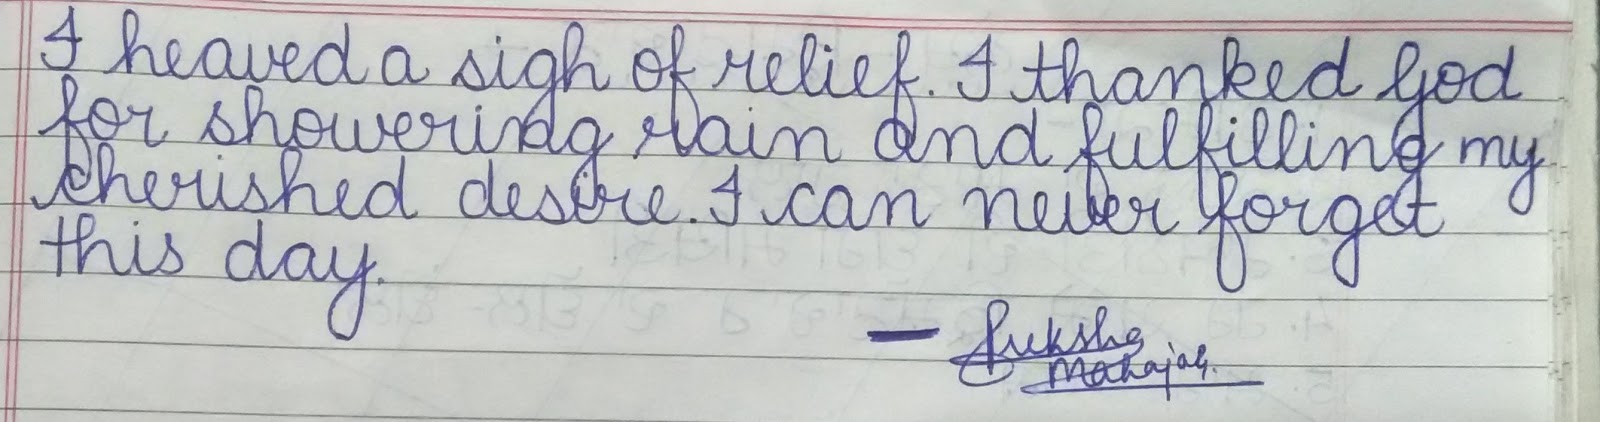 I heaved a sigh of relief. I thanked God
for showering rain and fulfilling my
cherished desire. I can never forget
this day.
Mahajan